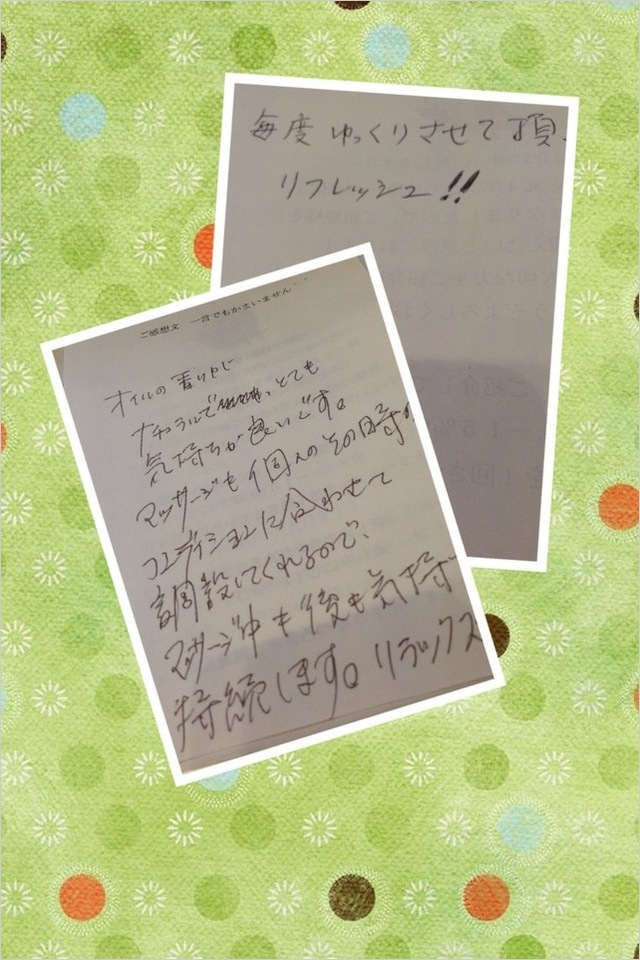 毎度ゆっくりさせて頂、
リフレッシュ!!
ご感想文 一言でもかまいません
オイルの香りが
ナチュラルで とても
気持ちが良いです。
マッサージも個人のその時
コンディションに合わせて
調整してくれるので、
マッサージ中も後も気持
持続します。リラックス